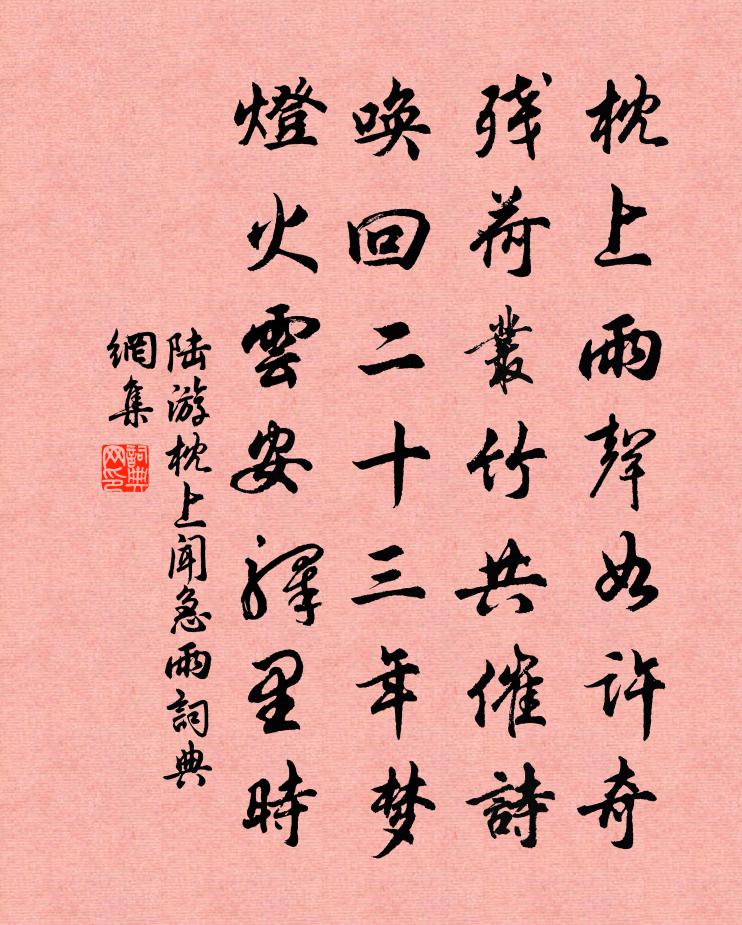 枕上雨聲如许奇
残荷叢竹共催詩
唤回二十三年梦
燈火雲安驛里時
陆游枕上闻急雨詞典
網集
詞典
网印